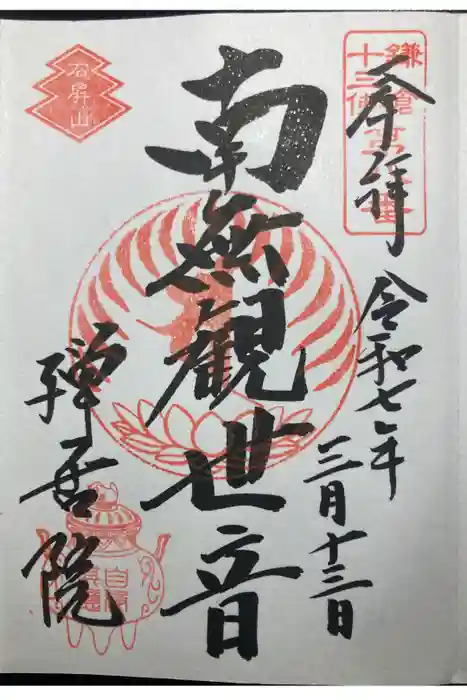 奉拝
令和七年
三月十三日
南無観世音
禅居院
石屏山
鎌倉
十三佛